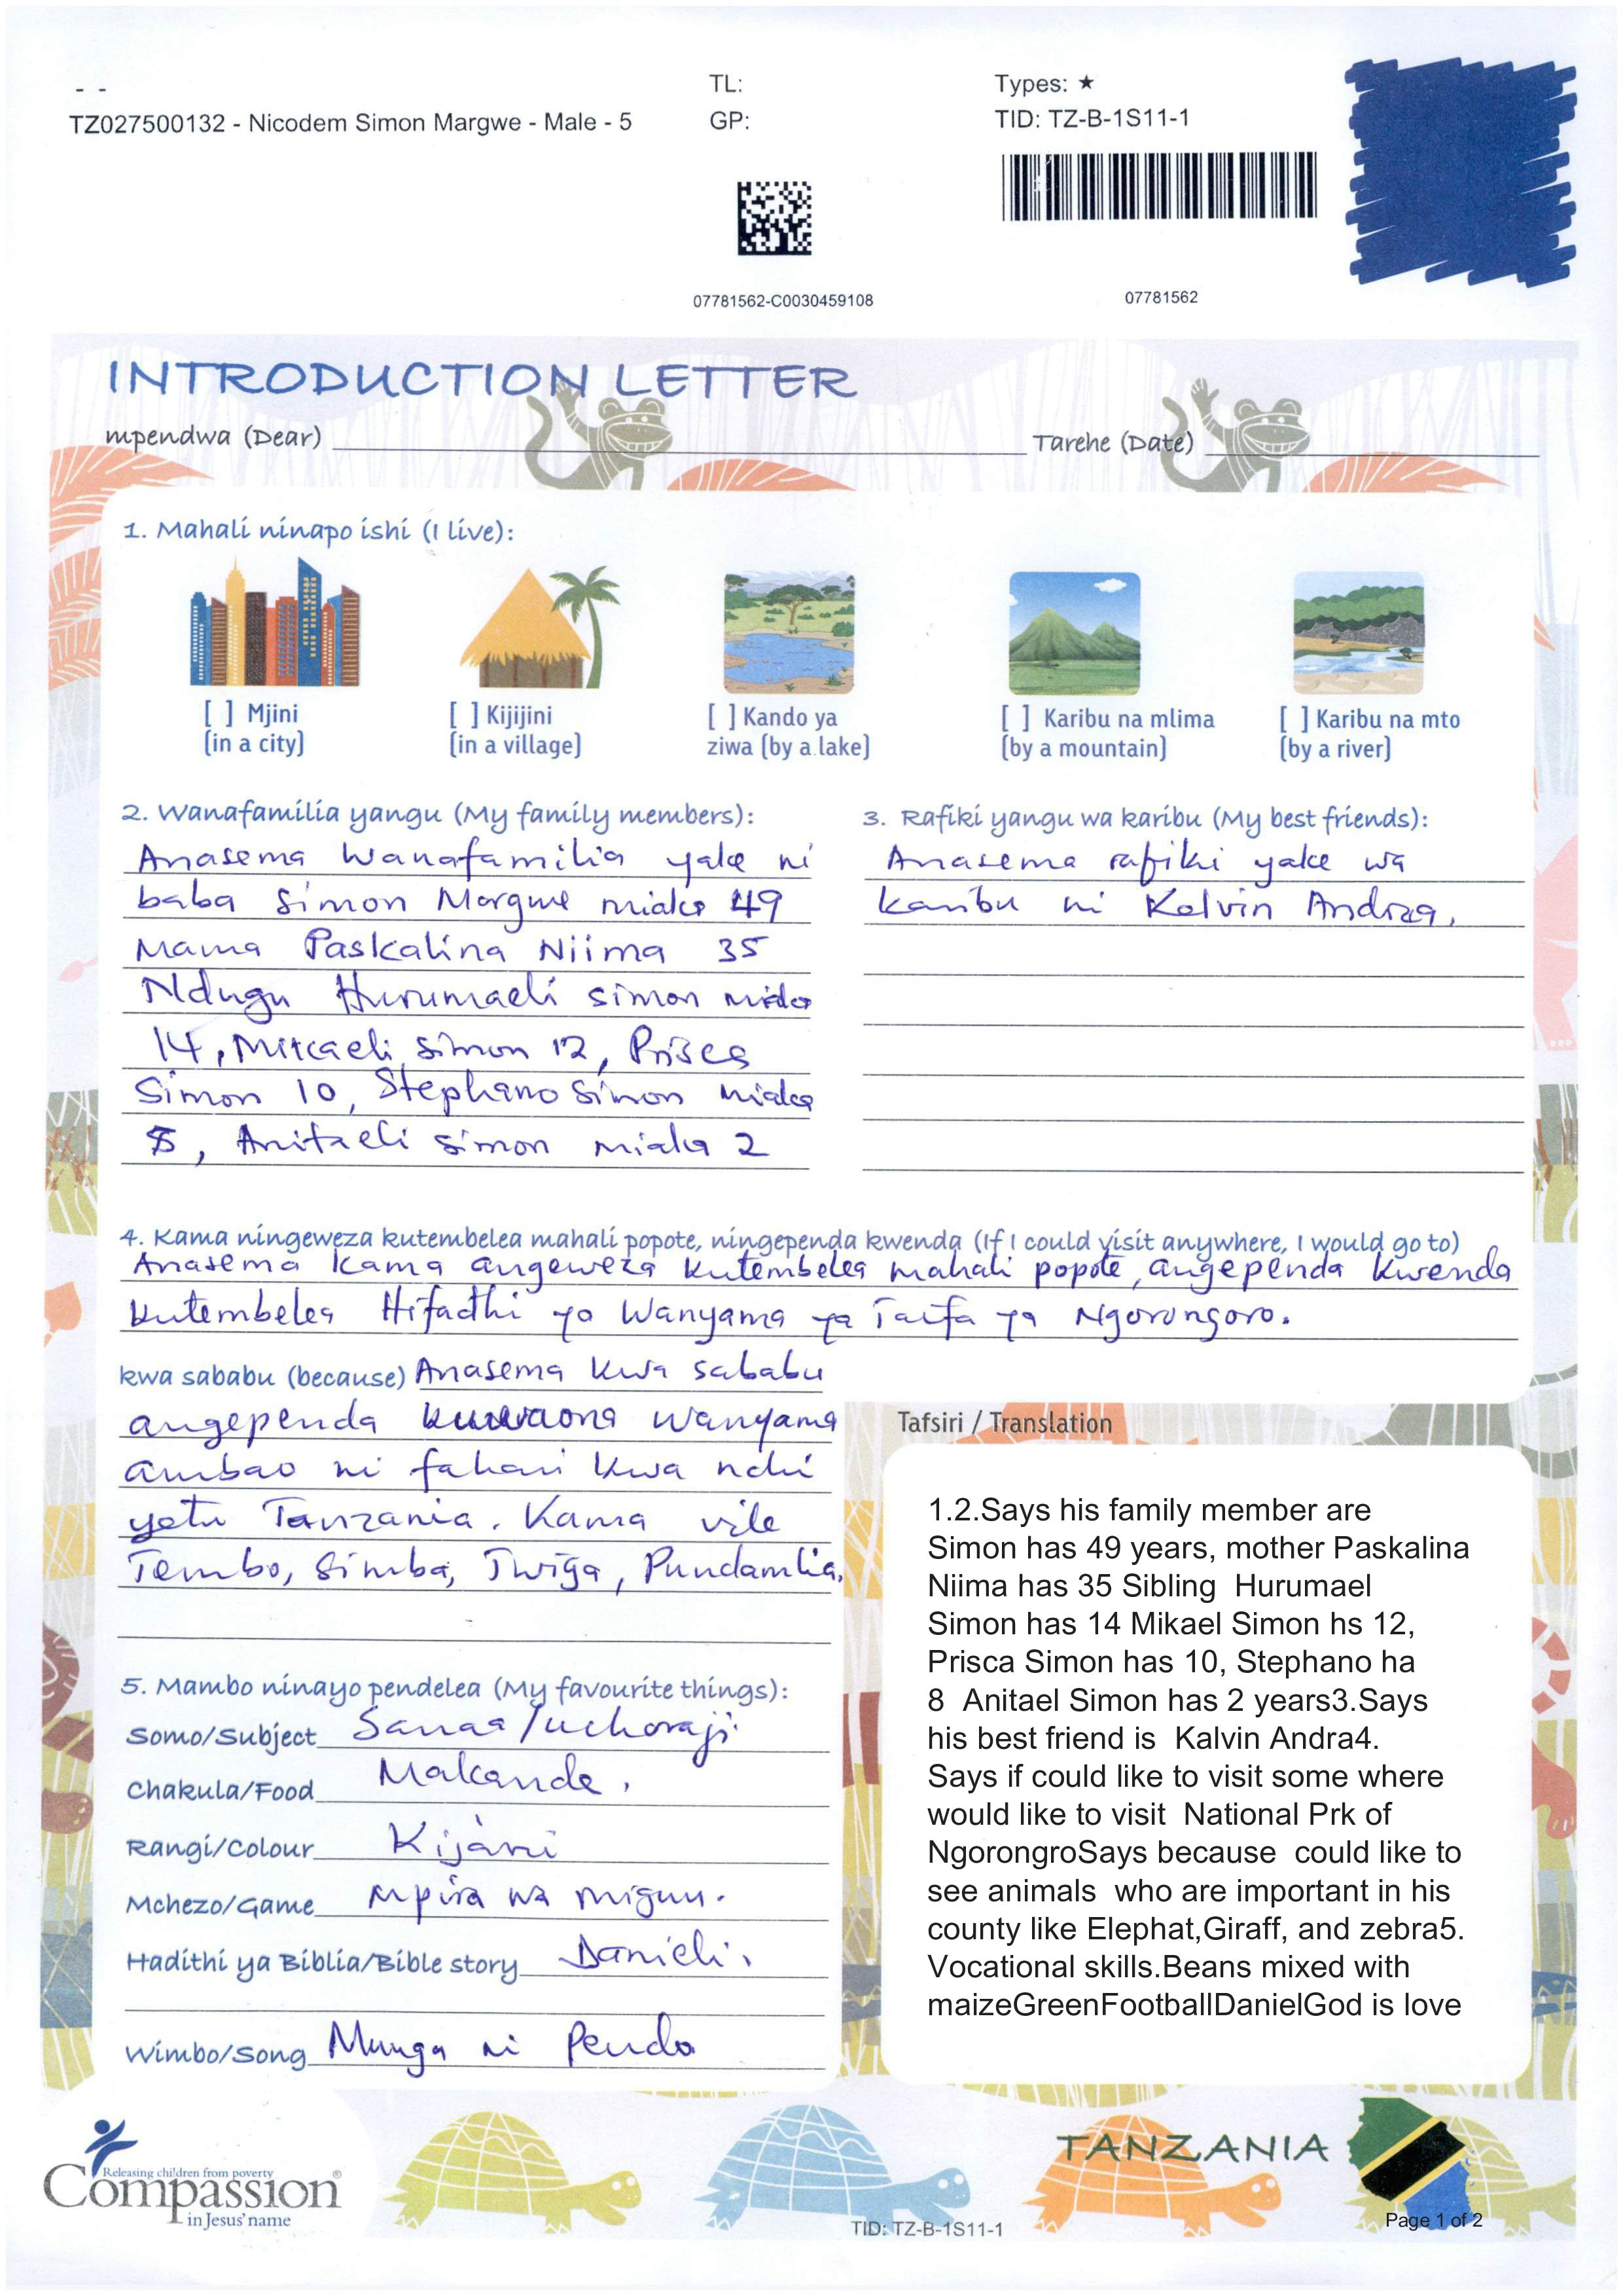 - -
TZ027500132 - Nicodem Simon Margwe - Male - 5
TL:
GP:
Types: ★
TID: TZ-B-1S11-1
07781562-C0030459108
07781562
INTRODUCTION LETTER
mpendwa (Dear)
Tarehe (Date)
1. Mahali ninapo ishi (I live):
[ ] Mjini
(in a city)
[ ] Kijijini
(in a village)
[ ] Kando ya
ziwa (by a lake)
[ ] Karibu na mlima
(by a mountain)
[ ] Karibu na mto
(by a river)
2. Wanafamilia yangu (My family members):
Anasema Wanafamilia yake ni
baba Simon Margwe miaka 49
Mama Paskalina Niima 35
Ndugu Hurumaeli simon miaka
14, Mikaeli Simon 12, Prisca
Simon 10, Stephano Simon miaka
, Anitaeli simon miaka 2
3. Rafiki yangu wa karibu (My best friends):
Anasema rafiki yake wa
karibu ni Kelvin Andrea.
4. Kama ningeweza kutembelea mahali popote, ningependa kwenda (If I could visit anywhere, I would go to)
Anasema kama angeweza kutembelea mahali popote, angependa kwenda
kutembelea Hifadhi ya Wanyama ya Taifa ya Ngorongoro.
kwa sababu (because) Anasema kwa sababu
angependa kuwaona wanyama
ambao ni fahari kwa nchi
yetu Tanzania. Kama vile
Tembo, Simba, Twiga, Pundamlia.
5. Mambo ninayo pendelea (My favourite things):
Somo/Subject Sanaa/uchoraji
Chakula/Food Makande.
Rangi/Colour Kijani
Mchezo/Game Mpira wa miguu.
Hadithi ya Biblia/Bible story Danieli.
Wimbo/Song Mungu ni Pendo
Tafsiri / Translation
1.2.Says his family member are
Simon has 49 years, mother Paskalina
Niima has 35 Sibling Hurumael
Simon has 14 Mikael Simon hs 12,
Prisca Simon has 10, Stephano ha
8 Anitael Simon has 2 years3.Says
his best friend is Kalvin Andra4.
Says if could like to visit some where
would like to visit National Prk of
NgorongroSays because could like to
see animals who are important in his
county like Elephat,Giraff, and zebra5.
Vocational skills.Beans mixed with
maizeGreenFootballDanielGod is love
Releasing children from poverty
Compassion®
in Jesus' name
TID: TZ-B-1S11-1
TANZANIA
Page 1 of 2